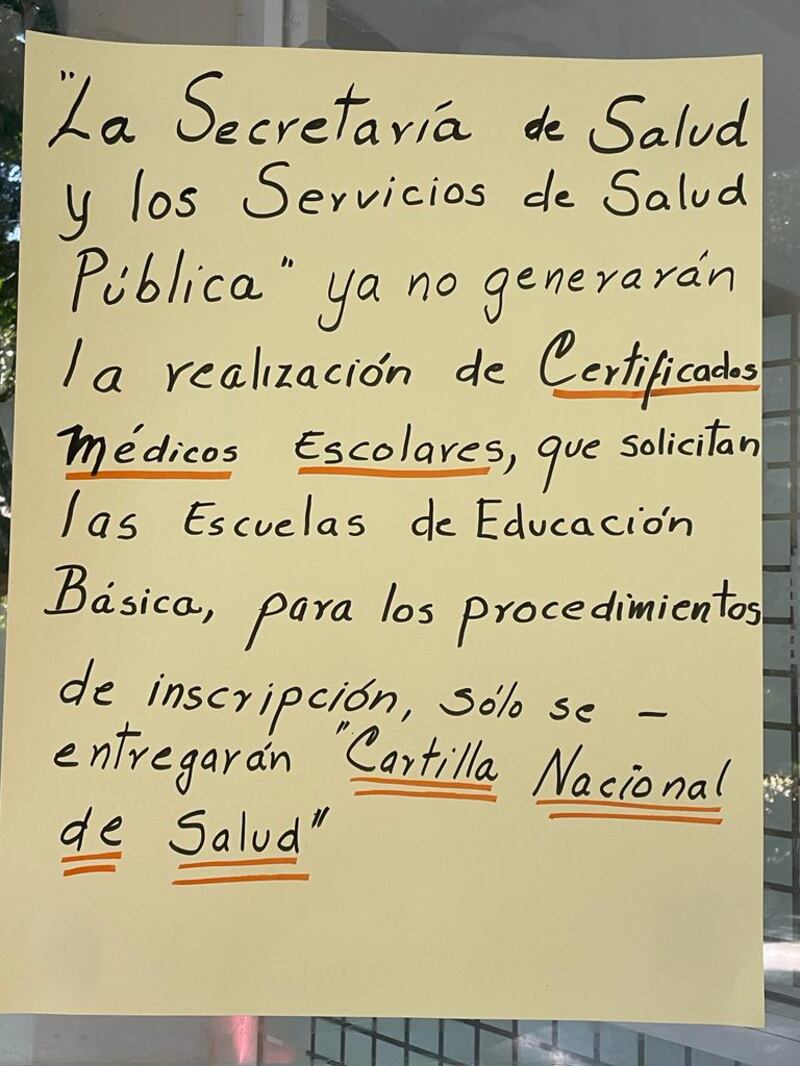 "La Secretaría de Salud
y los Servicios de Salud
Pública" ya no generarán
la realización de Certificados
Médicos Escolares, que solicitan
las Escuelas de Educación
Básica, para los procedimientos
de inscripción, sólo se -
entregarán "Cartilla Nacional
de Salud"